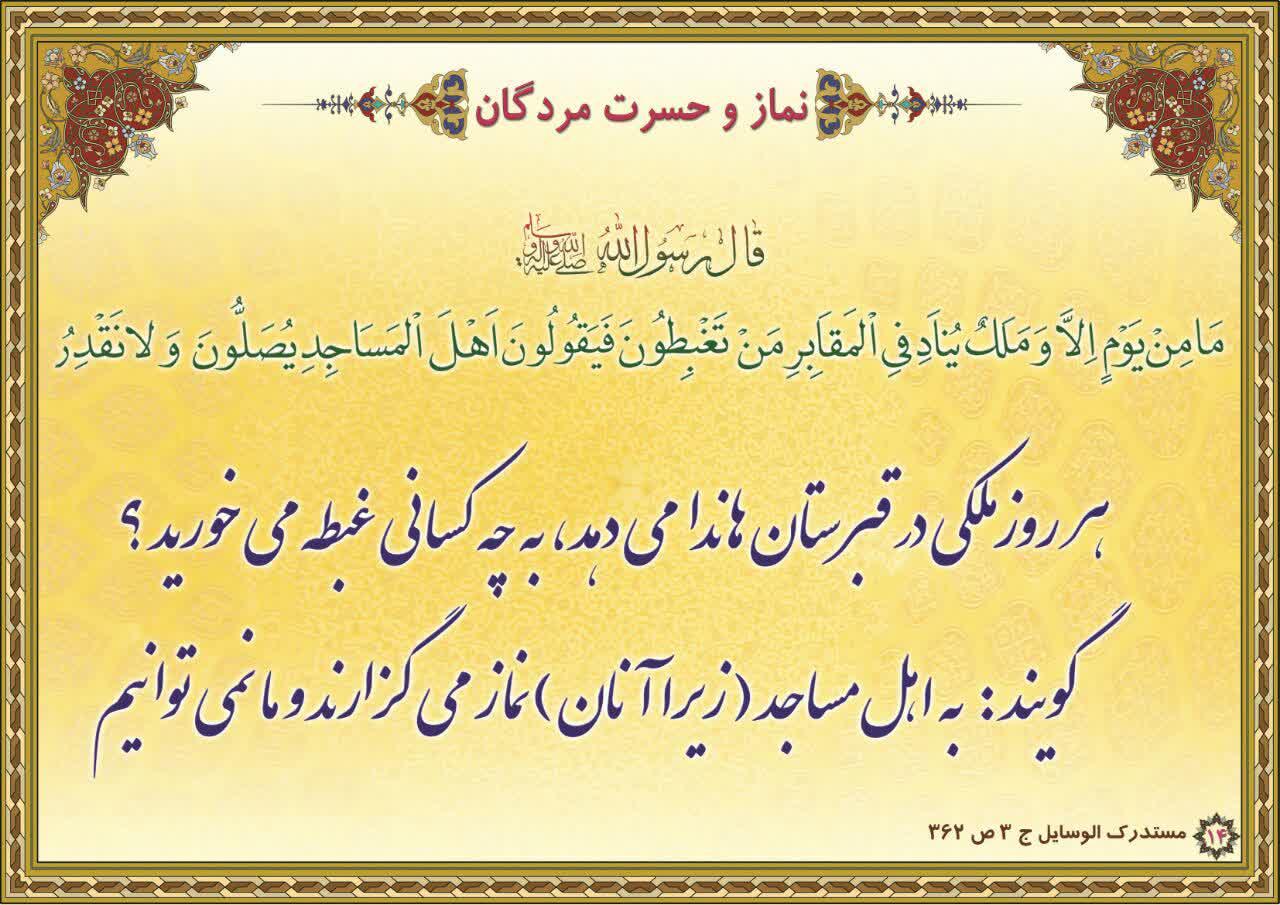 نماز و حسرت مردگان
قال رسول الله صلی الله علیه و آله و سلم
مَا مِنْ يَوْمٍ اِلاَّ وَ مَلَكٌ يُنَادِ فِي الْمَقَابِرِ مَنْ تَغْبِطُونَ فَيَقُولُونَ اَهْلَ الْمَسَاجِدِ يُصَلُّونَ وَ لا نَقْدِرُ
هر روز ملکی در قبرستان ها ندا می دهد، به چه کسانی غبطه می خورید؟
گویند: به اهل مساجد (زیرا آنان) نماز می گزارند و ما نمی توانیم
۱۴ مستدرک الوسایل ج ۳ ص ۳۶۲